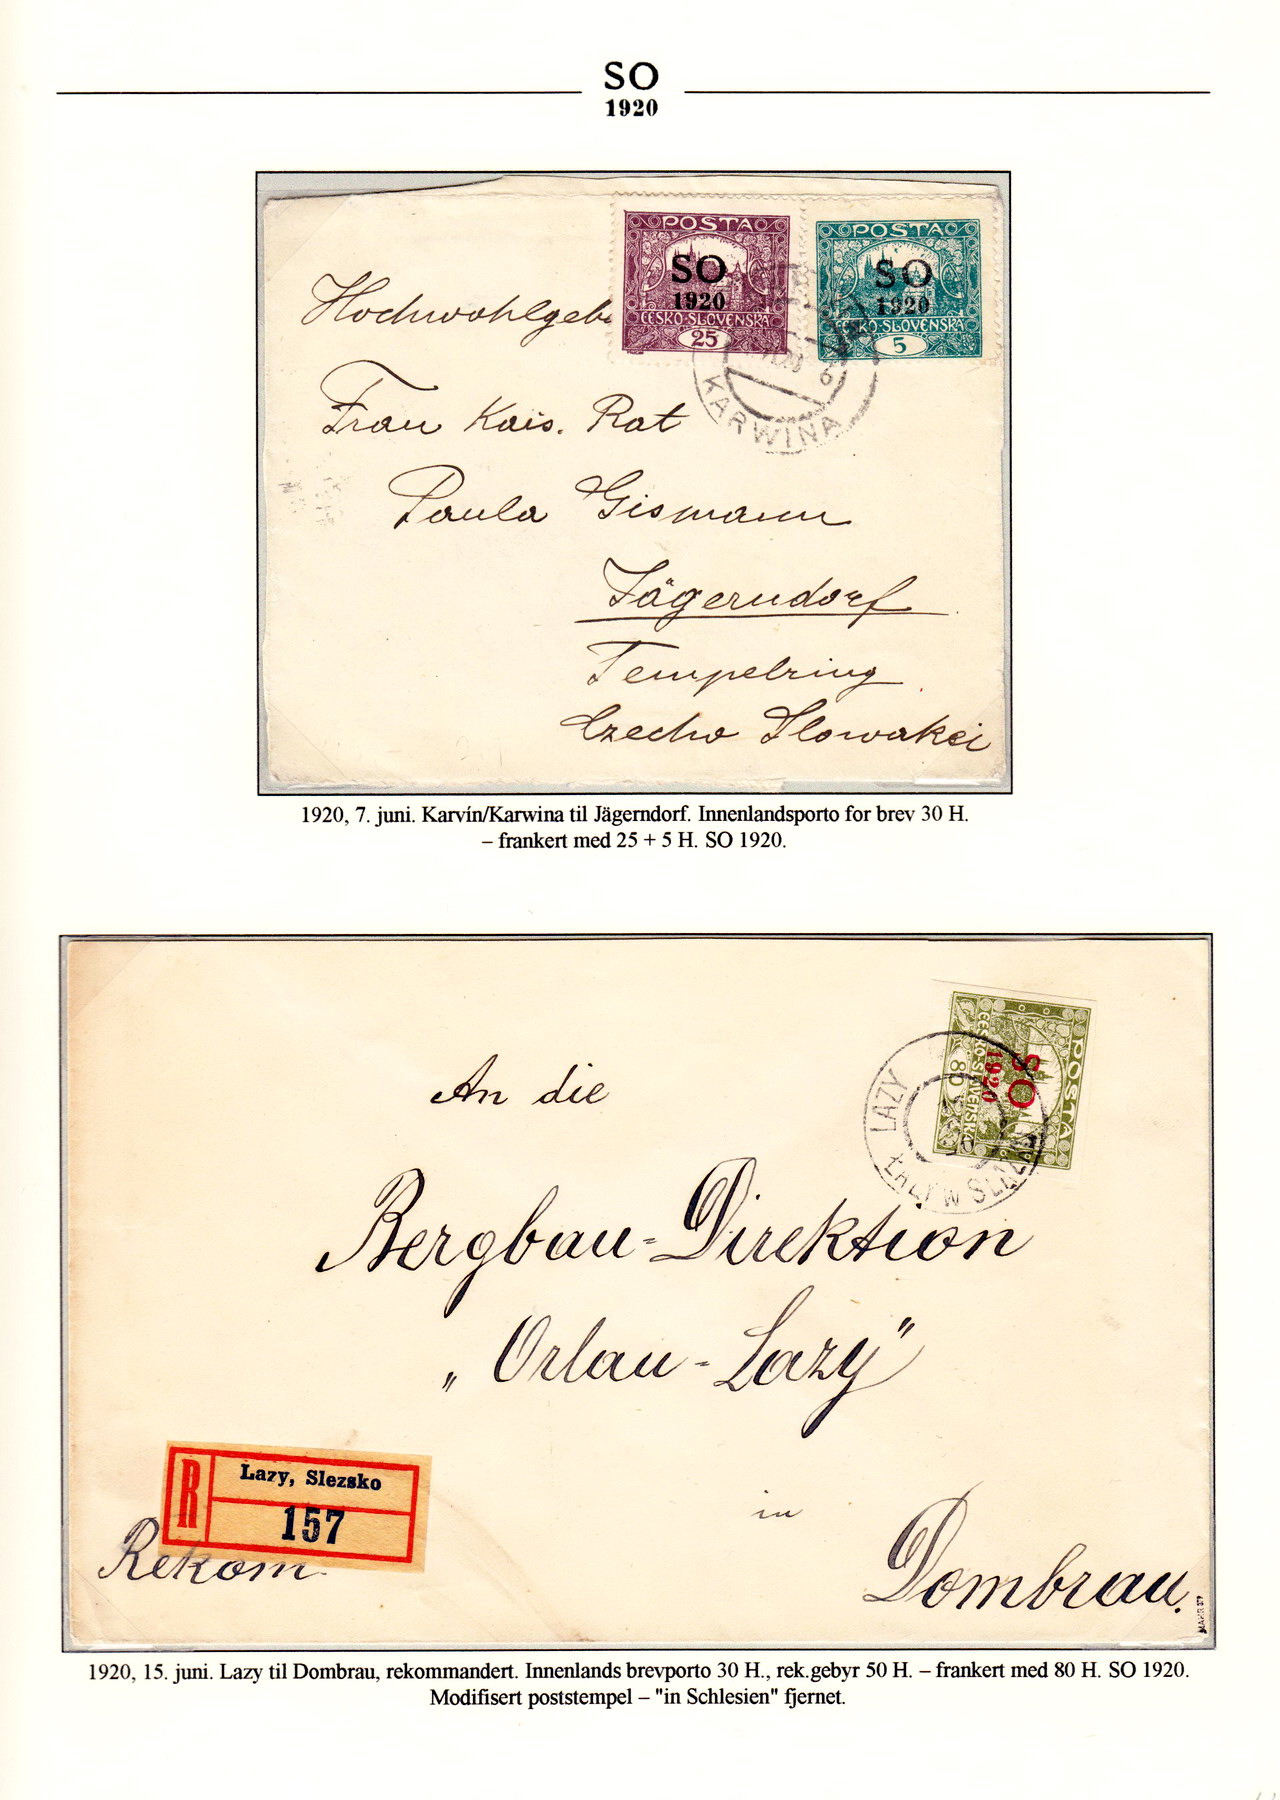 SO
1920
POSTA
SO
1920
ČESKO-SLOVENSKÁ
25
POSTA
SO
1920
ČESKO-SLOVENSKÁ
5
KARWINA
Hochwohlgeb
Frau Kais. Rat
Paula Gismann
Jägerndorf
Tempelring
Czecho Slowakei
1920, 7. juni. Karvín/Karwina til Jägerndorf. Innenlandsporto for brev 30 H.
– frankert med 25 + 5 H. SO 1920.
POSTA
SO
1920
ČESKO-SLOVENSKÁ
80
LAZY
ŁAZY W
An die
Bergbau-Direktion
„Orlau-Lazy"
in
Dombrau.
R
Lazy, Slezsko
157
Rekom.
1920, 15. juni. Lazy til Dombrau, rekommandert. Innenlands brevporto 30 H., rek.gebyr 50 H. – frankert med 80 H. SO 1920.
Modifisert poststempel – "in Schlesien" fjernet.